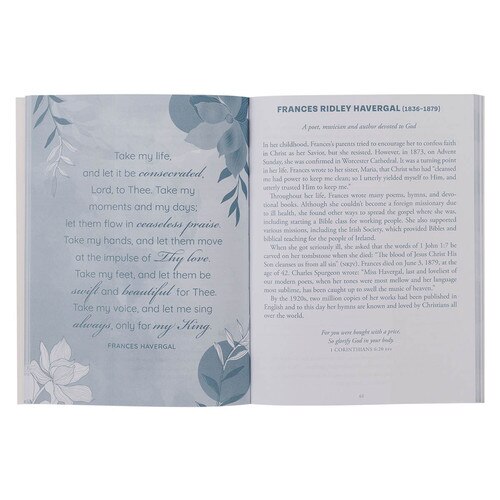 Take my life,
and let it be consecrated,
Lord, to Thee. Take my
moments and my days;
let them flow in ceaseless praise.
Take my hands, and let them move
at the impulse of Thy love.
Take my feet, and let them be
swift and beautiful for Thee.
Take my voice, and let me sing
always, only for my King.
FRANCES HAVERGAL
FRANCES RIDLEY HAVERGAL (1836-1879)
A poet, musician and author devoted to God
In her childhood, Frances's parents tried to encourage her to confess faith
in Christ as her Savior, but she resisted. However, in 1873, on Advent
Sunday, she was confirmed in Worcester Cathedral. It was a turning point
in her life. Frances wrote to her sister, Maria, that Christ who had "cleansed
me had power to keep me clean; so I utterly yielded myself to Him, and
utterly trusted Him to keep me."
Throughout her life, Frances wrote many poems, hymns, and devo-
tional books. Although she couldn't become a foreign missionary due
to ill health, she found other ways to spread the gospel where she was,
including starting a Bible study for her neighbors. She supported vari-
ous missions, including the Irish Society, which provided Bibles and
biblical teaching for the people of Ireland.
When she was seriously ill, she asked that the words of 1 John 1:7 be
carved on her tombstone when she died: "The blood of Jesus Christ His
Son cleanses us from all sin" (NKJV). Frances died on June 3, 1879, at the
age of 42. Charles Spurgeon wrote: "Miss Havergal, last and loveliest of
our modern poets, when her tones were most mellow and her language
most sublime, has been caught up to swell the music of heaven."
By the 1920s, two million copies of her works had been published in
English and to this day her hymns are known and loved by Christians all
over the world.
For you were bought with a price.
So glorify God in your body.
1 CORINTHIANS 6:20 ESV